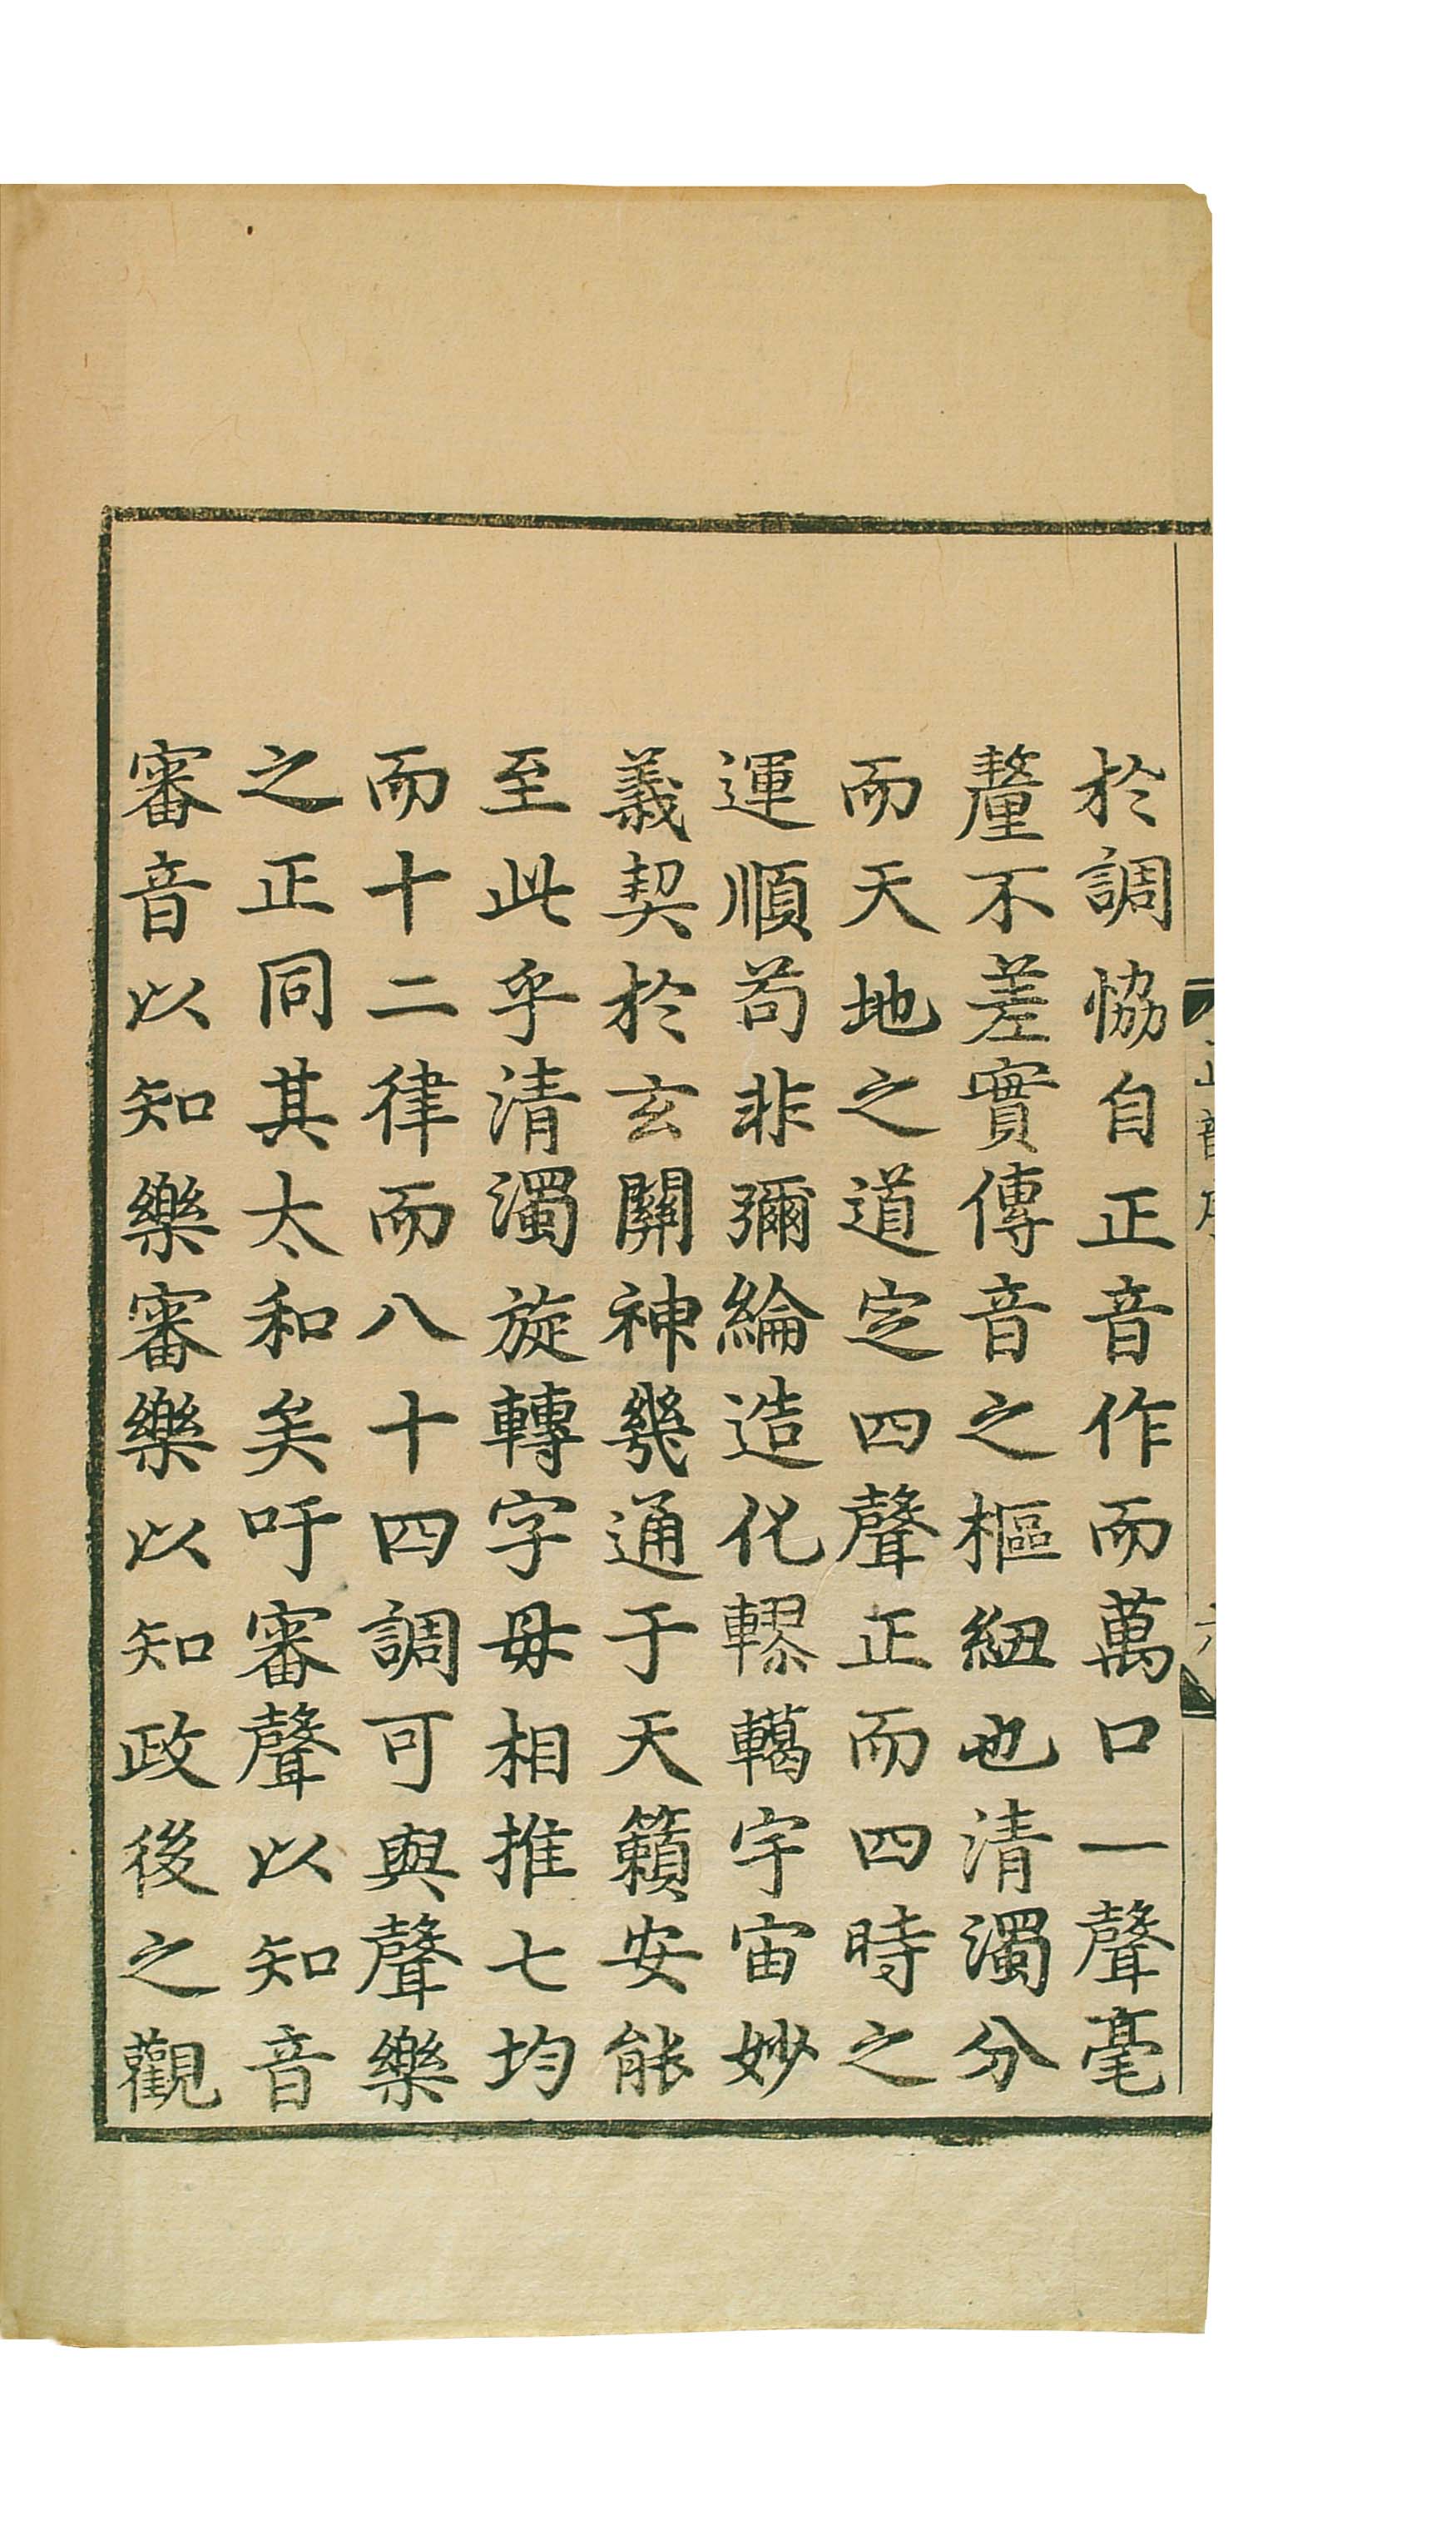 於調恊自正音作而萬口一聲毫
釐不差實傳音之樞紐也清濁分
而天地之道定四聲正而四時之
運順苟非彌綸造化轇轕宇宙妙
義契於玄關神幾通于天籟安能
至此乎清濁旋轉字母相推七均
而十二律而八十四調可與聲樂
之正同其太和矣吁審聲以知音
審音以知樂審樂以知政後之觀